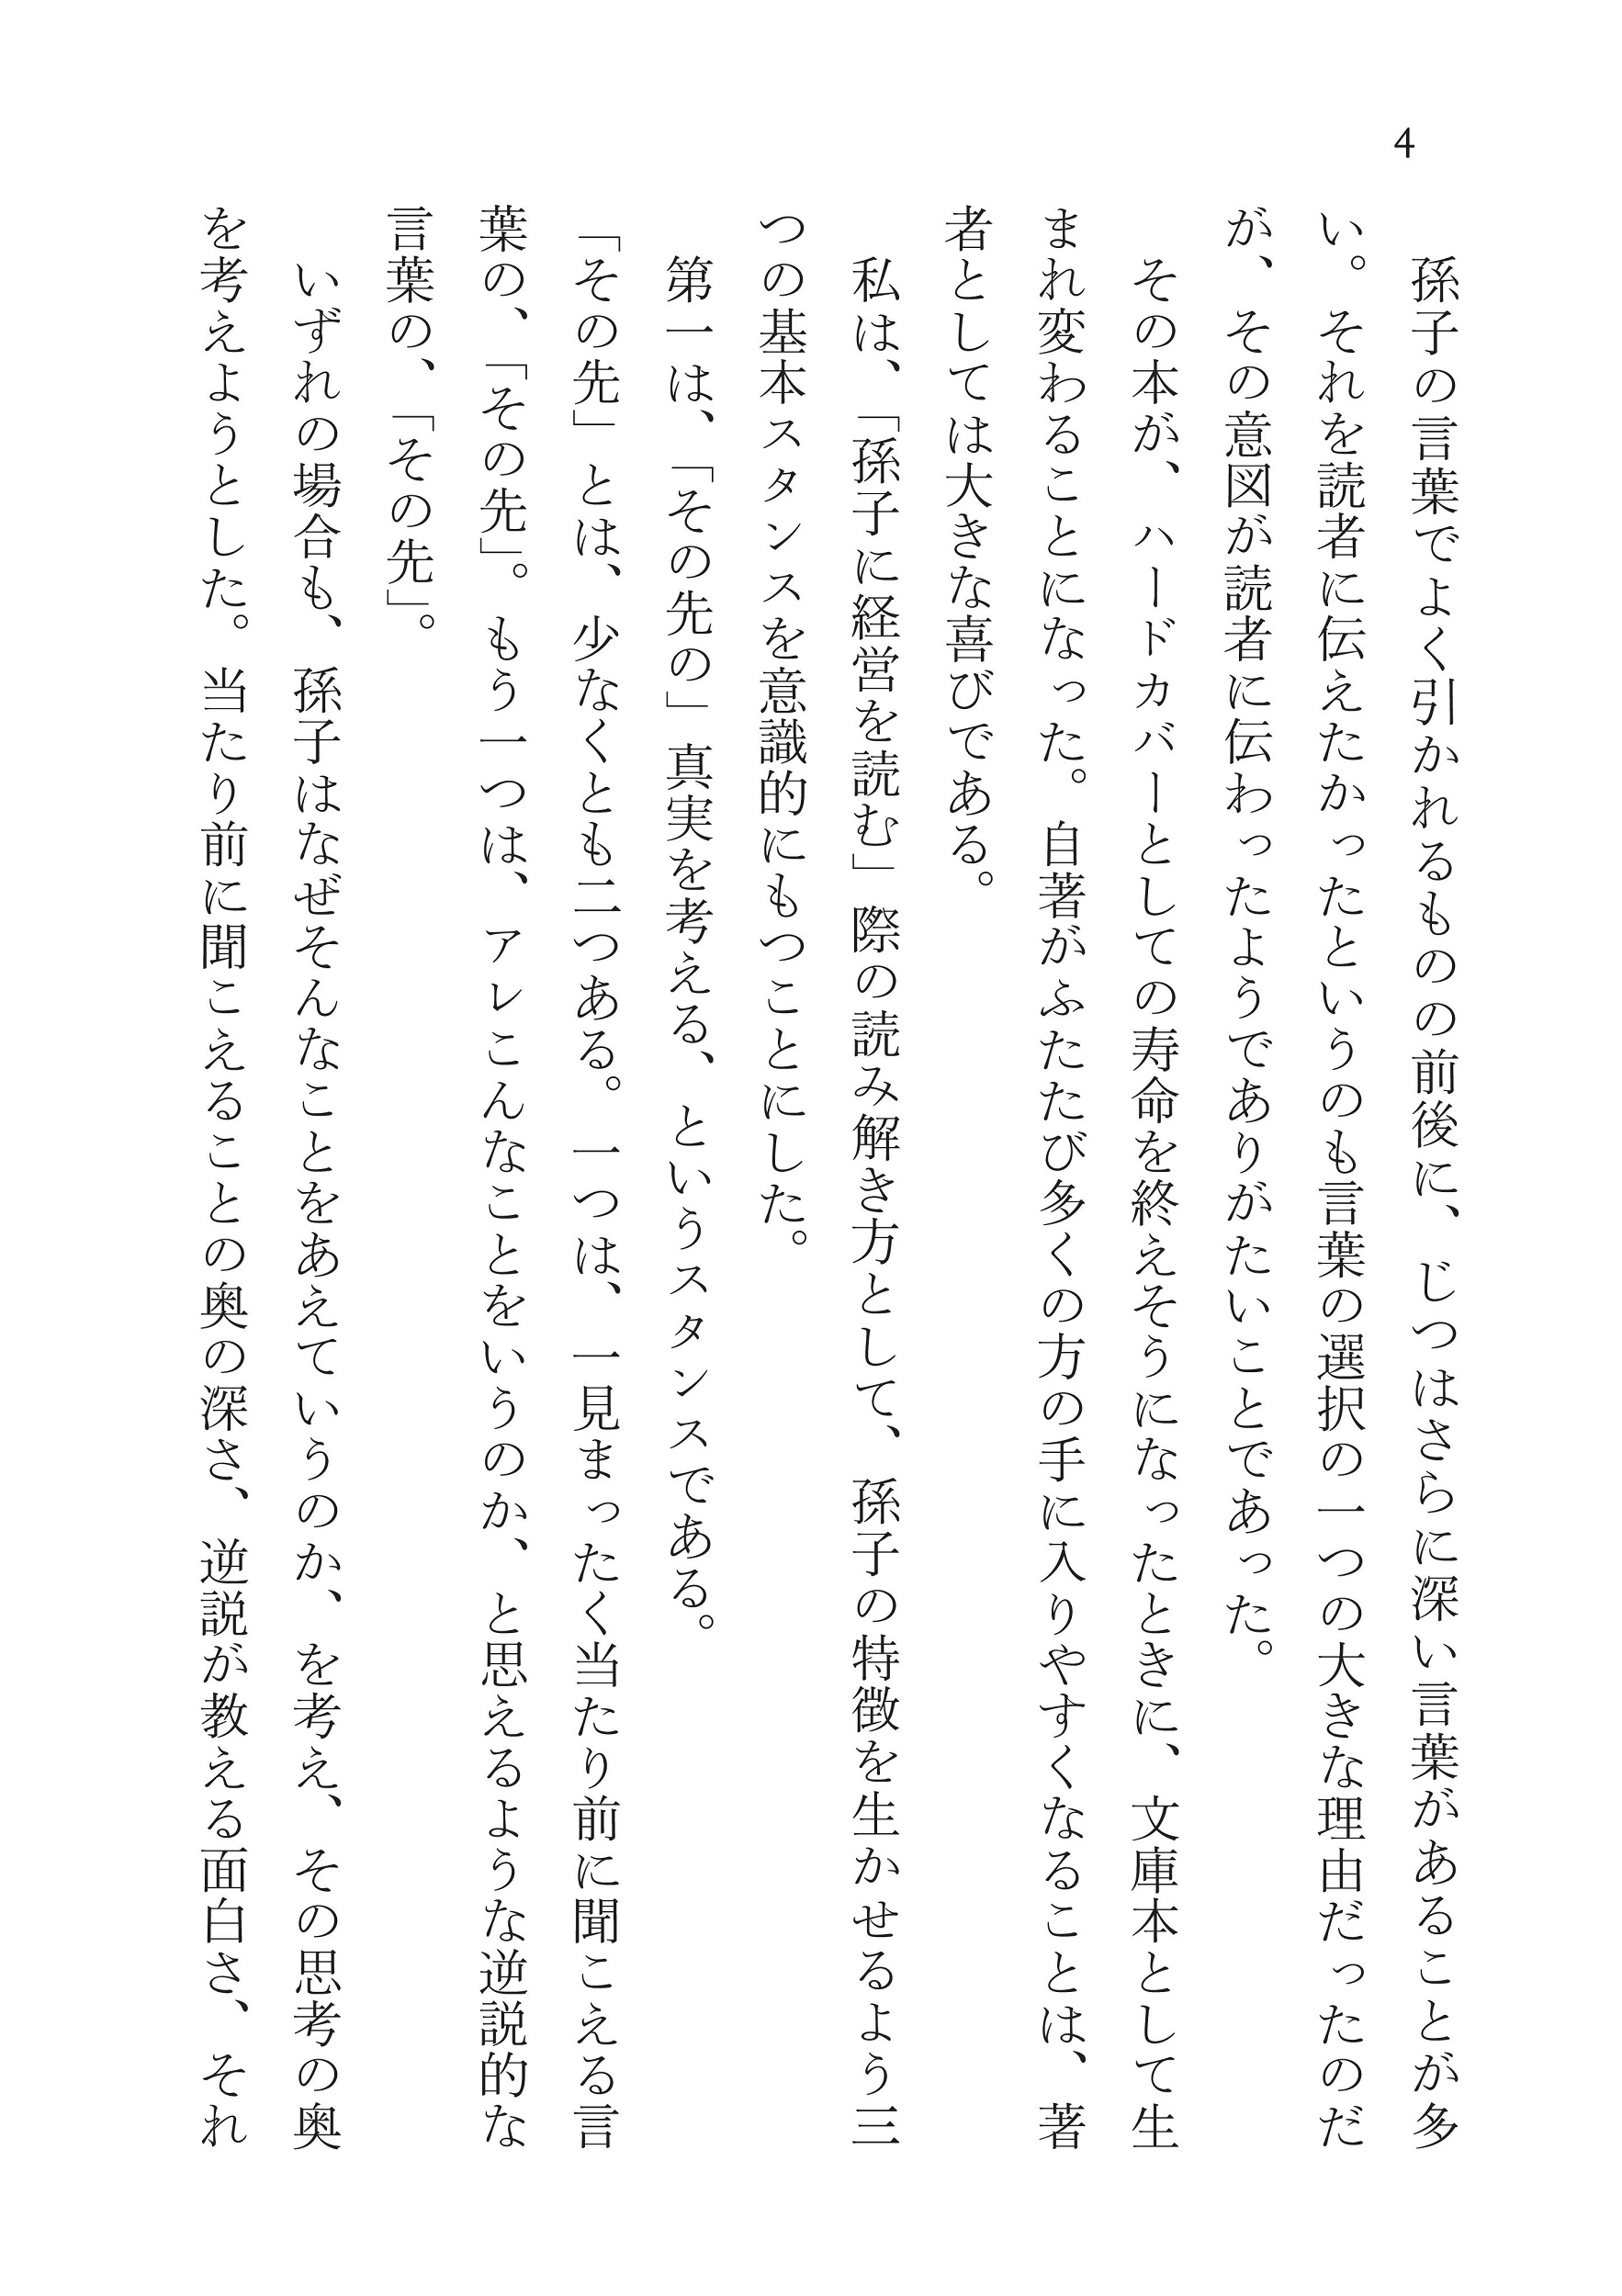 4
　孫子の言葉でよく引かれるものの前後に、じつはさらに深い言葉があることが多
い。それを読者に伝えたかったというのも言葉の選択の一つの大きな理由だったのだ
が、その意図が読者に伝わったようでありがたいことであった。
　その本が、ハードカバーとしての寿命を終えそうになったときに、文庫本として生
まれ変わることになった。自著がふたたび多くの方の手に入りやすくなることは、著
者としては大きな喜びである。
　私は、「孫子に経営を読む」際の読み解き方として、孫子の特徴を生かせるよう三
つの基本スタンスを意識的にもつことにした。
　第一は、「その先の」真実を考える、というスタンスである。
「その先」とは、少なくとも二つある。一つは、一見まったく当たり前に聞こえる言
葉の、「その先」。もう一つは、アレこんなことをいうのか、と思えるような逆説的な
言葉の、「その先」。
　いずれの場合も、孫子はなぜそんなことをあえていうのか、を考え、その思考の奥
を考えようとした。当たり前に聞こえることの奥の深さ、逆説が教える面白さ、それ